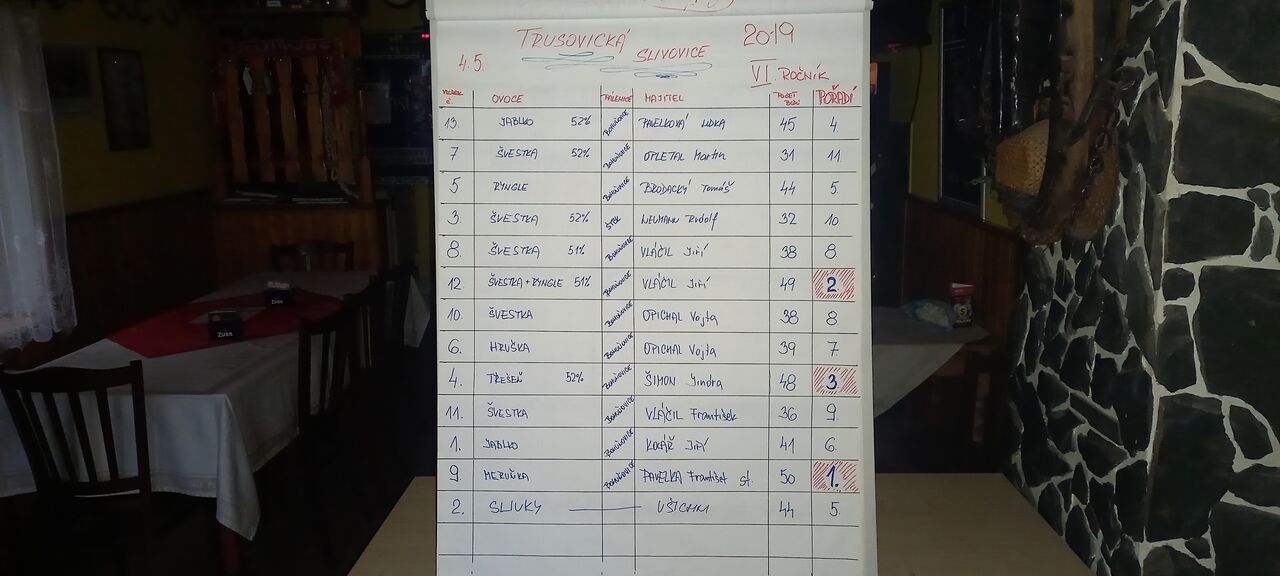 TRUSOVICKÁ 2019
4.5. SLIVOVICE VI. ROČNÍK
VZOREK Č. OVOCE PÁLENICE MAJITEL POČET BODŮ POŘADÍ
13. JABLKO 52% BOHUŇOVICE PAVELKOVÁ LIDKA 45 4.
7 ŠVESTKA 52% BOHUŇOVICE OPLETAL Martin 31 11.
5. RYNGLE BOHUŇOVICE BRODACKÝ Tomáš 44 5.
3. ŠVESTKA 52% NEUMANN Rudolf 32 10.
8. ŠVESTKA 51% BOHUŇOVICE VLÁČIL Jiří 38 8.
12. ŠVESTKA + RYNGLE 51% BOHUŇOVICE VLÁČIL Jiří 49 2
10. ŠVESTKA BOHUŇOVICE OPICHAL Vojta 38 8
6. HRUŠKA BOHUŇOVICE OPICHAL Vojta 39 7.
4. TŘEŠEŇ 52% BOHUŇOVICE ŠIMON Jindra 48 3
11. ŠVESTKA BOHUŇOVICE VLÁČIL František 36 9.
1. JABLKO BOHUŇOVICE JIŘÍ 41 6.
9. MERUŇKA BOHUŇOVICE PAVELKA František st. 50 1.
2. SLIVKY VŠICHNI 44 5.
ZUBR
ZUBR